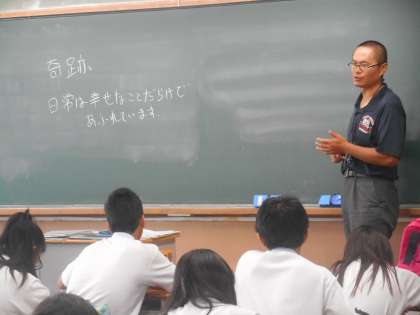 奇跡、
日常は幸せなことだらけで
あふれています。